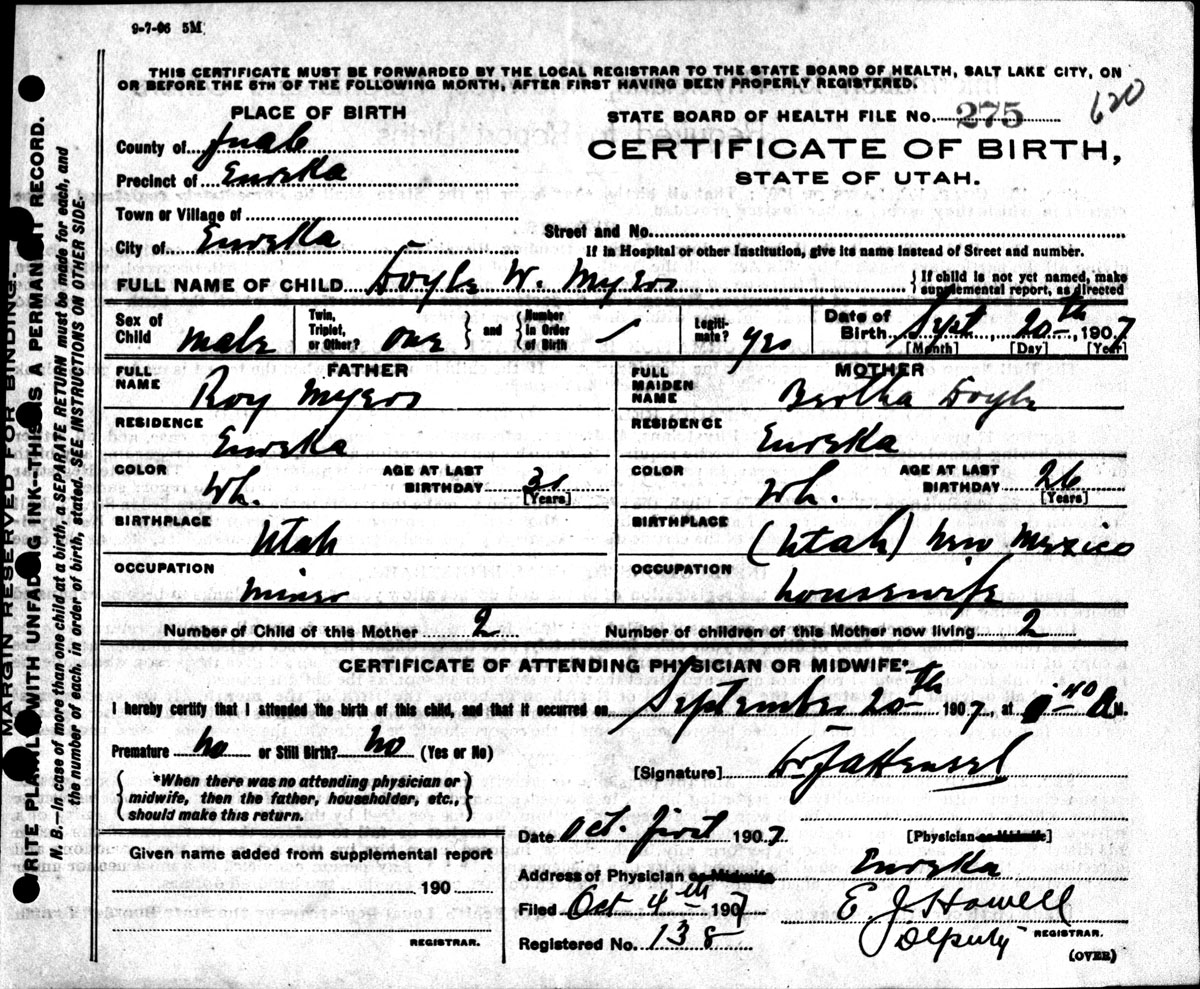 9-7-06 5M
THIS CERTIFICATE MUST BE FORWARDED BY THE LOCAL REGISTRAR TO THE STATE BOARD OF HEALTH, SALT LAKE CITY, ON
OR BEFORE THE 5TH OF THE FOLLOWING MONTH, AFTER FIRST HAVING BEEN PROPERLY REGISTERED.
620
PLACE OF BIRTH
STATE BOARD OF HEALTH FILE No. 275
County of Juab
CERTIFICATE OF BIRTH,
Precinct of Eureka
STATE OF UTAH.
Town or Village of
Street and No.
City of Eureka
If in Hospital or other Institution, give its name instead of Street and number.
FULL NAME OF CHILD Doyle W. Myers
} If child is not yet named, make
supplemental report, as directed
Sex of Child male
Twin, Triplet, or Other? one } and { Number in Order of Birth
Legiti-mate? yes
Date of Birth Sept, 20th, 1907
[Month] [Day] [Year]
FATHER
FULL NAME Roy Myers
RESIDENCE Eureka
COLOR Wh. AGE AT LAST BIRTHDAY [Years]
BIRTHPLACE Utah
OCCUPATION miner
MOTHER
FULL MAIDEN NAME Bertha Doyle
RESIDENCE Eureka
COLOR Wh. AGE AT LAST BIRTHDAY 26 [Years]
BIRTHPLACE (Utah) New Mexico
OCCUPATION housewife
Number of Child of this Mother 2 Number of children of this Mother now living 2
CERTIFICATE OF ATTENDING PHYSICIAN OR MIDWIFE*
I hereby certify that I attended the birth of this child, and that it occurred on September 20th 1907, at A M.
Premature No or Still Birth? No (Yes or No)
{ *When there was no attending physician or
midwife, then the father, householder, etc.,
should make this return. }
[Signature] Dr J A Hensel
Date Oct. first 1907 [Physician or Midwife]
Given name added from supplemental report
190
REGISTRAR.
Address of Physician or Midwife Eureka
Filed Oct 4th 1907 E. J. Howell
Registered No. 138 Deputy REGISTRAR.
(OVER)
MARGIN RESERVED FOR BINDING.
WRITE PLAINLY WITH UNFADING INK--THIS IS A PERMANENT RECORD.
N. B.--In case of more than one child at a birth, a SEPARATE RETURN must be made for each, and
the number of each, in order of birth, stated. SEE INSTRUCTIONS ON OTHER SIDE.